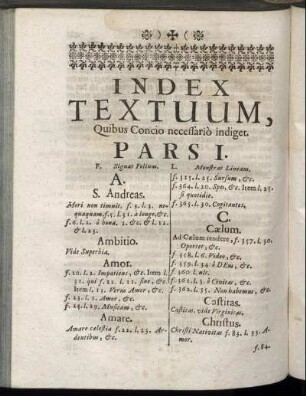 INDEX
TEXTUUM,
Quibus Concio necessariò indiget.
PARS I.
F. Signat Folium. L. Monstrat Lineam.
A.
S. Andreas.
Mori non timuit. f. 5. l. 3. ne-
quaquam. f. 5. l. 31. à longe, &c.
f. 6. l. 2. ò bona. l. &c. & l. 12.
& l. 23.
Ambitio.
Vide Superbia.
Amor.
f. 20. l. 2. Impatiens, &c. Item l.
31. qui f. 21. l. 21. sine, &c.
Item l. 13. Verus Amor, &c.
f. 23. l. 2. Amor, &c.
f. 24. l. 29. Musicam, &c.
Amare.
Amare cælestia f. 22. l. 23. Ar-
dentibus, &c.
f. 325. l. 25. Sursum, &c.
f. 364. l. 20. Spes, &c. Item l. 25.
si quotidie.
f. 365. l. 30. Cogitantes,
C.
Cælum.
Ad Cælum tendere. f. 357. l. 30.
Oportet, &c.
f. 358. l. 6. Video, &c.
f. 359. l. 34. ô DEus, &c.
f. 360. l. ult.
f. 361. l. 3. ô Civitas, &c.
f. 362. l. 35. Non habemus, &c.
Castitas.
Castitas. vide Virginitas.
Christus.
Christi Nativitas f. 83. l. 33. A-
mor.
f. 84.